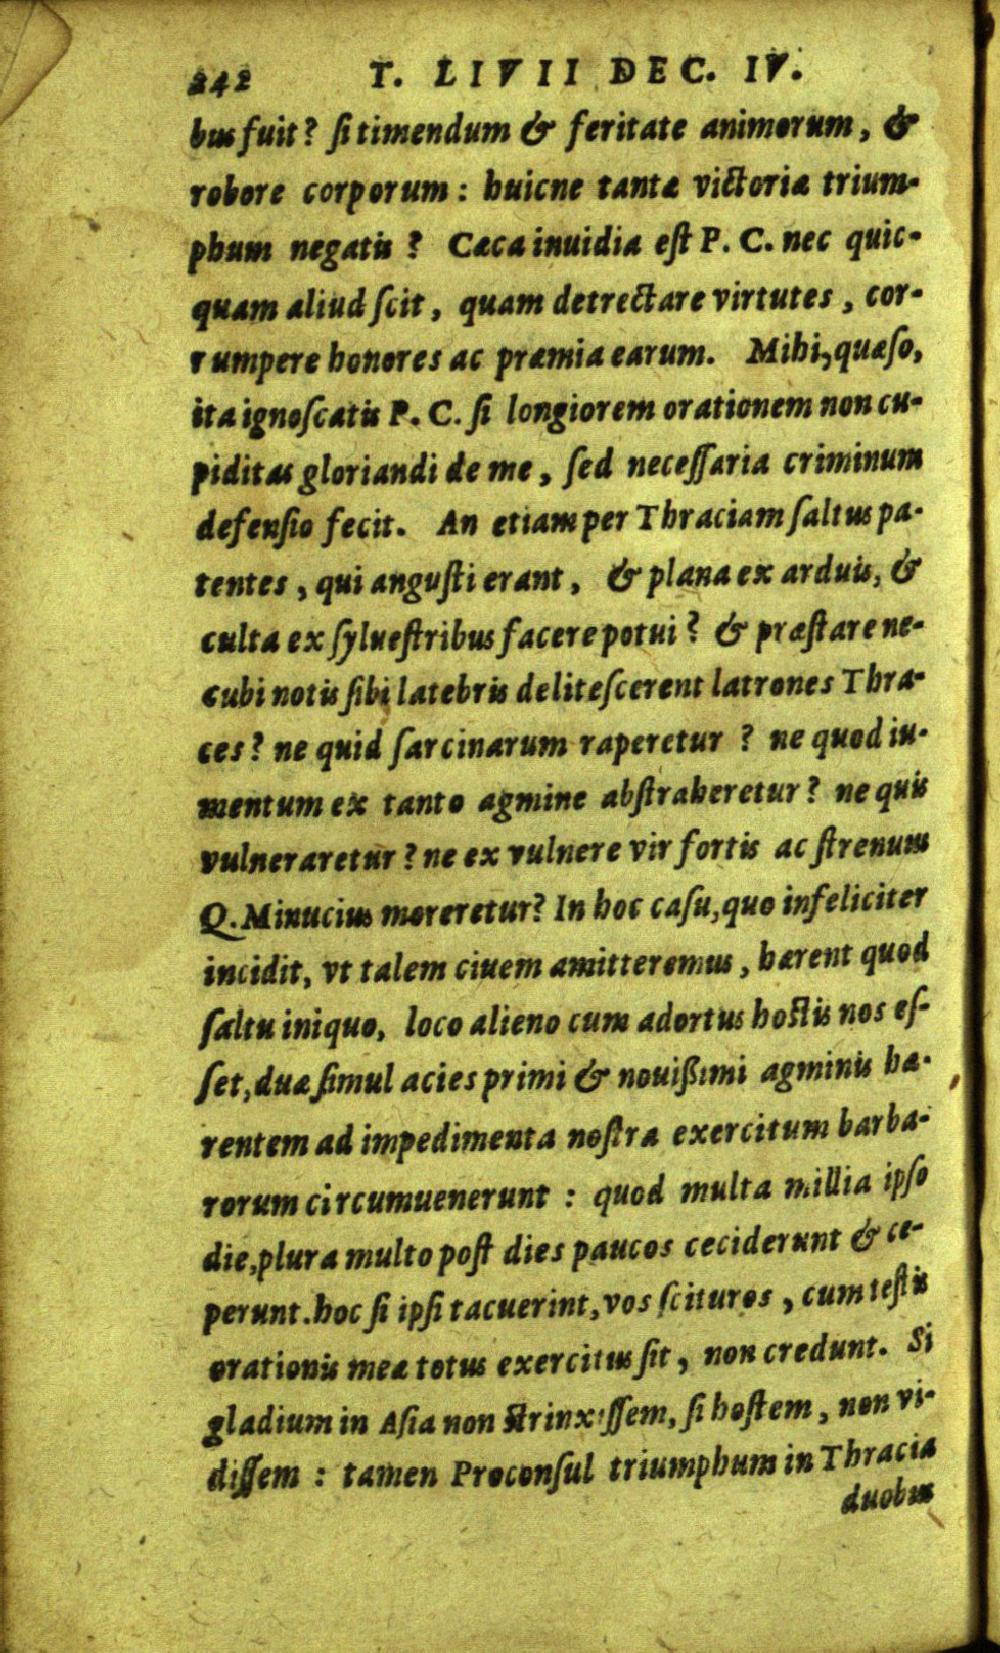 242 T. LIVII DEC. IV.
bus fuit? si timendum & feritate animorum, &
robore corporum: huicne tantæ victoriæ trium-
phum negatis? Cæca inuidia est P. C. nec quic-
quam aliud scit, quam detrectare virtutes, cor-
rumpere honores ac præmia earum. Mihi, quæso,
ita ignoscatis P. C. si longiorem orationem non cu-
piditas gloriandi de me, sed necessaria criminum
defensio fecit. An etiam per Thraciam saltus pa-
tentes, qui angusti erant, & plana ex arduis, &
culta ex syluestribus facere potui? & præstare ne-
cubi notis sibi latebris delitescerent latrones Thra-
ces? ne quid sarcinarum raperetur? ne quod iu-
mentum ex tanto agmine abstraheretur? ne quis
vulneraretur? ne ex vulnere vir fortis ac strenuus
Q. Minucius moreretur? In hoc casu, quo infeliciter
incidit, vt talem ciuem amitteremus, hærent quod
saltu iniquo, loco alieno cum adortus hostis nos es-
set, duæ simul acies primi & nouissimi agminis hæ-
rentem ad impedimenta nostra exercitum barba-
rorum circumuenerunt: quod multa millia ipso
die, plura multo post dies paucos ceciderunt & ce-
perunt. hoc si ipsi tacuerint, vos scituros, cum testis
orationis meæ totus exercitus sit, non credunt. Si
gladium in Asia non strinxissem, si hostem, non vi-
dissem: tamen Proconsul triumphum in Thracia
duobus